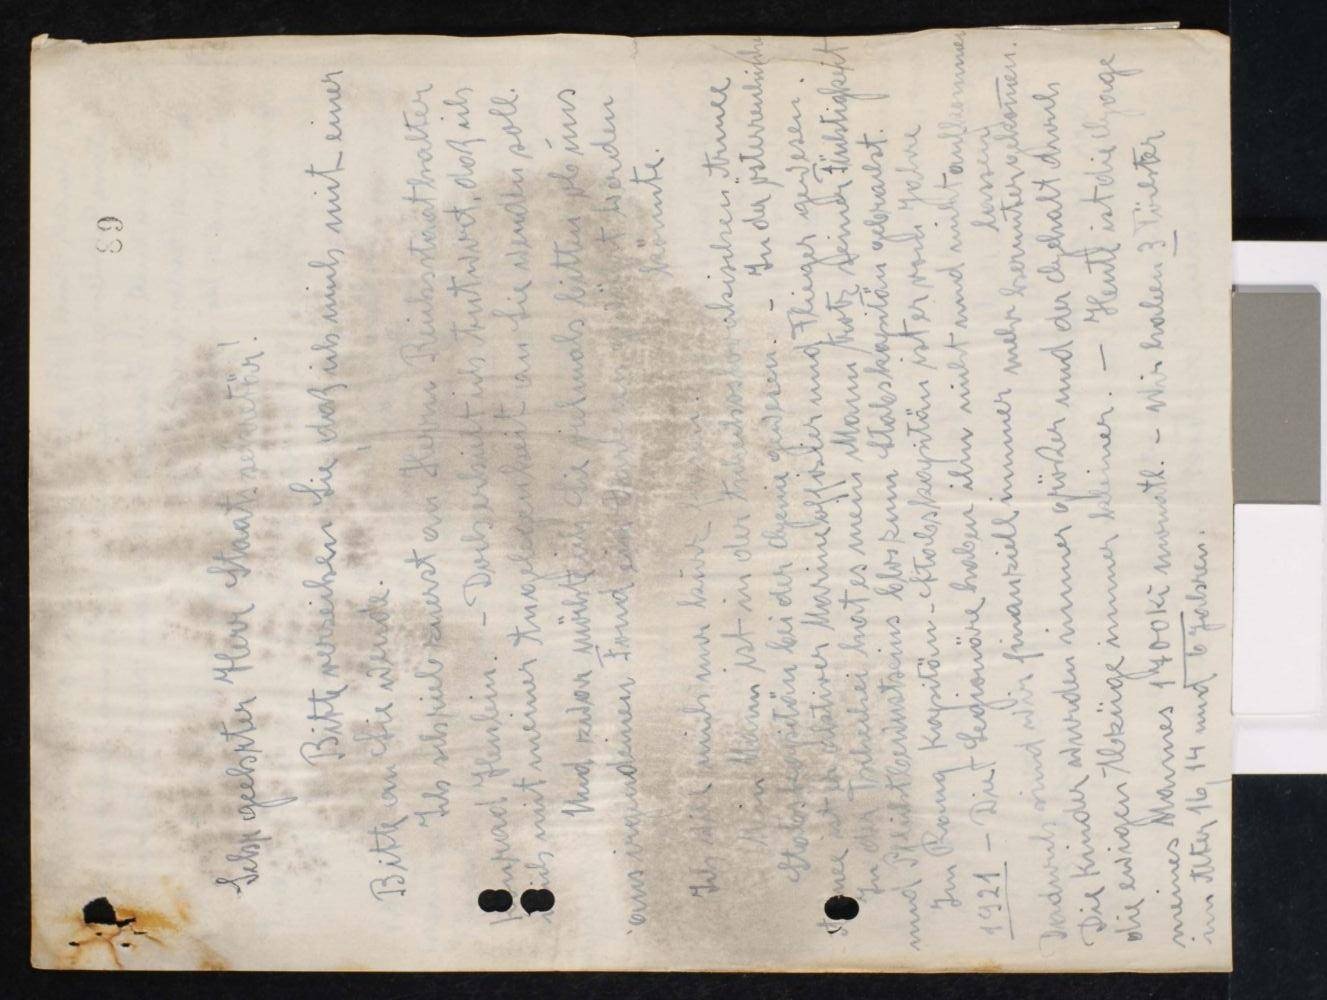 89
Sehr geehrter Herr Staatssekretär!
Bitte verzeihen Sie daß ich mich mit einer
Bitte an Sie wende.
Ich schrieb zuerst an Herrn Reichsstatthalter
Konrad Henlein. – Daher erhielt ich Antwort, daß ich
mich mit meiner Angelegenheit an Sie wenden soll.
Und zwar möchte ich Sie vielmals bitten ob uns
aus irgendeinem Fond ein werden
könnte.
Ich will mich nur kurz
Mein Mann ist in der tschechoslovakischen Armee
Stabskapitän bei der Genie gewesen. – In der österreichischen
Armee ist er aktiver Marineoffizier und Flieger gewesen.
In der Tschechei hat es mein Mann trotz seiner Tüchtigkeit
und Pflichtbewustseins blos zum Stabskapitän gebracht.
Im Rang Kapitän-Stabskapitän ist er vom Jahre
1921 – Die Legionäre haben ihn nicht und nicht aufkommen
lassen
Dadurch sind wir finanziell immer mehr heruntergekommen.
Die Kinder wurden immer größer und der Gehalt durch
die ewigen Abzüge immer kleiner. – Heute ist die Gage
meines Mannes 1700 Kč monatl. – Wir haben 3 Töchter
im Alter 16, 14 und 6 Jahren.